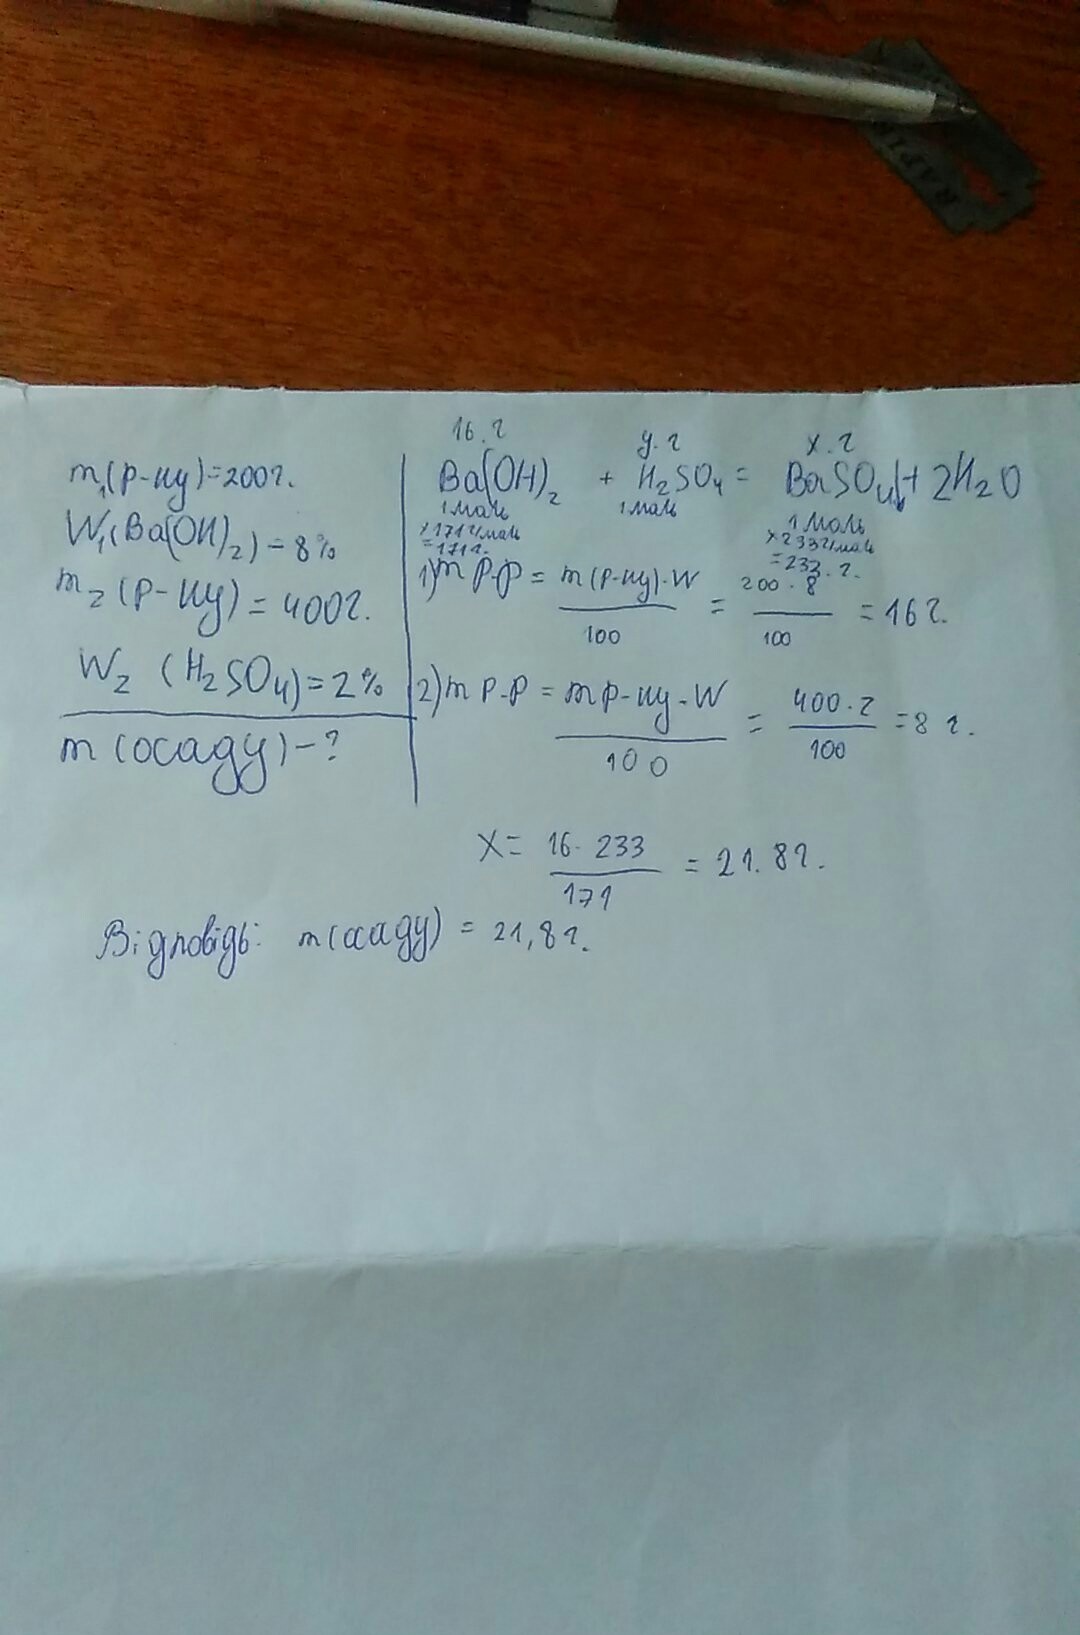 RAPI
m₁(р-ну)=200г.
W₁(Ba(OH)₂)=8%
m₂(р-ну)=400г.
W₂ (H₂SO₄)=2%
m(осаду)-?
16.г у.г х.г
Ba(OH)₂ + H₂SO₄ = BaSO₄↓+ 2H₂O
1моль 1моль 1моль
×171г/моль ×233г/моль
=171г. =233.г.
1)m р-р = m(р-ну)·W/100 = 200·8/100 = 16г.
2)m р-р = mр-ну·W/100 = 400·2/100 =8г.
X= 16·233/171 = 21.8г.
Відповідь: m(осаду) = 21,8г.